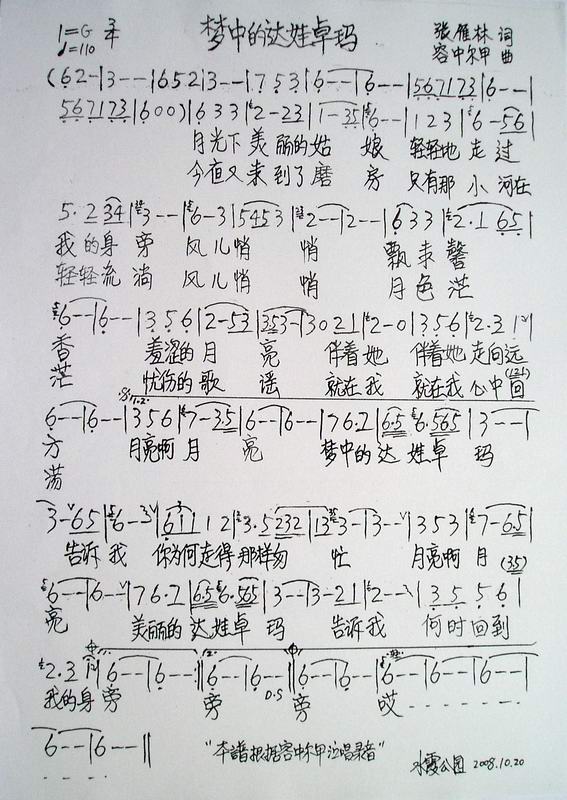 1=G 3/4 梦中的达娃卓玛 张雁林 词
♩=110 容中尔甲 曲
(6 2 - | 3 - - | 1 6 5 2 | 3 - - | 1 7 5 3 | 6 - - | 6 - - | 5 6 7 1 7 3 | 6 - - |
5 6 7 1 7 3 | 6 0 0 ) | 6 3 3 | 2 - 2 3 | 1 - 3 5 | 6 - - | 1 2 3 | 6 - 5 6 |
月光下 美 丽的 姑 娘 轻轻地 走 过
今夜又 来 到了 磨 房 只有那 小 河在
5· 2 3 4 | 3 - - | 6 - 3 | 5 4 5 3 | 2 - - | 2 - - | 6 3 3 | 2· 1 6 5 |
我 的身 旁 风 儿 悄 悄 飘 来 馨
轻轻流 淌 风 儿 悄 悄 月 色 茫
6 - - | 6 - - | 3 5 6 | 2 - 5 3 | 3 5 3 - | 3 0 2 1 | 2 - 0 | 3 5 6 | 2· 3 1 2 |
香 羞涩的 月 亮 伴着她 伴着她 走向远
茫 忧伤的 歌 谣 就在我 就在我 心中 回
6 - - | 6 - - | 3 5 6 | 7 - 3 5 | 6 - - | 6 - - | 7 6· 2 | 6 5 6· 5 6 5 | 3 - - |
方 月亮啊 月 亮 梦中的 达 娃 卓 玛
荡
3 - 6 5 | 6 - 3 | 6 1 1 2 | 3· 5 2 3 2 | 1 3 3 - | 3 - - | 3 5 3 | 7 - 6 5 |
告诉 我 你为何走得 那样匆 忙 月亮啊 月 (35)
6 - - | 6 - - | 7 6· 2 | 6 5 6· 5 6 5 | 3 - - | 3 - 2 1 | 2 - - | 3 5 5 6 |
亮 美丽的 达 娃 卓 玛 告诉 我 何 时 回 到
2· 3 1 2 | 6 - - | 6 - - | 6 - - | 6 - - | 6 - - | 6 - - | 6 - - | 6 - - |
D.S
我的身 旁 旁 旁 哎 - - - - - - -
6 - - | 6 - - ‖
"本譜根据容中尔甲演唱录音" 水霞公园 2008.10.20